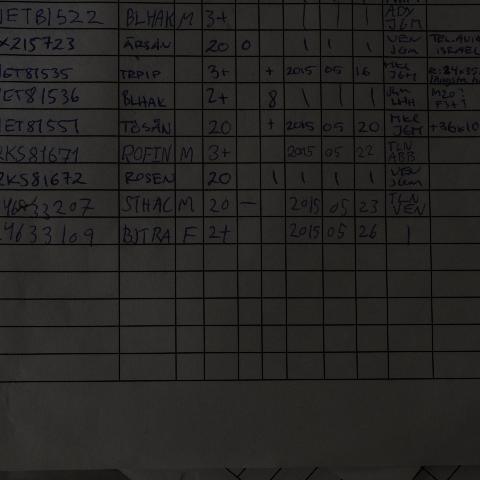 HETB1522 BLHAK M 3+ | | | ADY JGM
X215723 ÄRSÄN 20 0 | | | VEN JGM TEL AVIV ISRAEL
HET81535 TRPIP 3+ + 2015 05 16 MKE JGM
HET81536 BLHAK 2+ 8 | | |
HET81551 TOSÄN 20 + 2015 05 20 MKE JGM
RKS81671 ROFIN M 3+ 2015 05 22 TLN ABB
RKS81672 ROSEN 20 | | | | VEN JGM
4633207 STHAC M 20 — 2015 05 23 TLN VEN
4633109 BJTRA F 2+ 2015 05 26 |